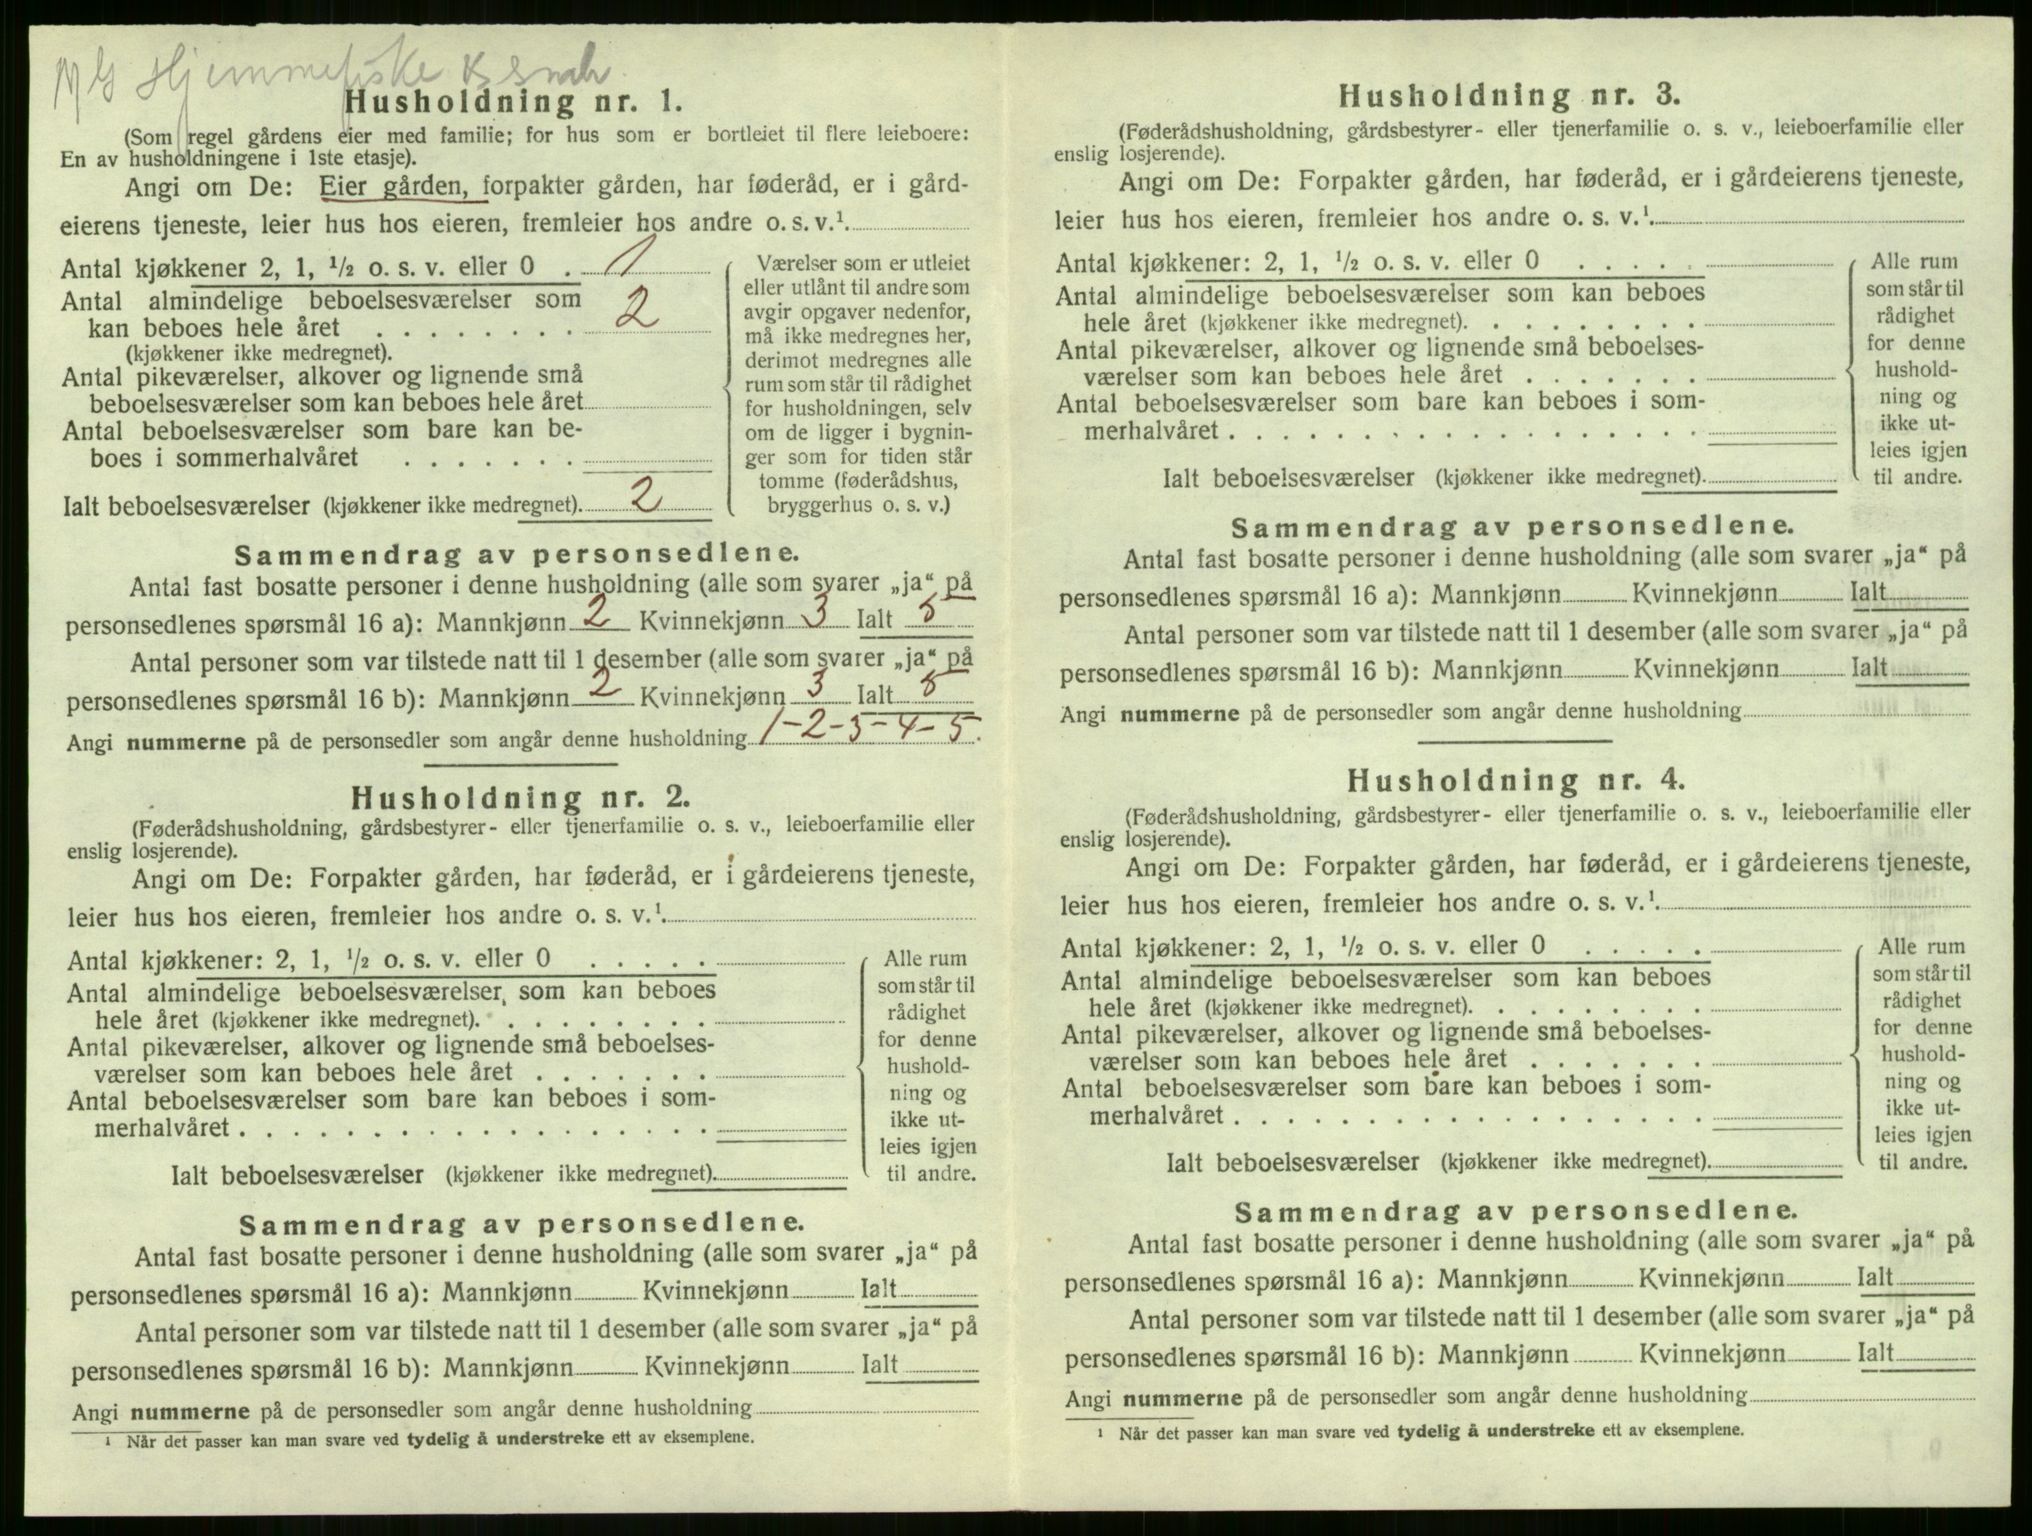 Hjemmefiske
Husholdning nr. 1.
(Som regel gårdens eier med familie; for hus som er bortleiet til flere leieboere:
En av husholdningene i 1ste etasje).
Angi om De: Eier gården, forpakter gården, har føderåd, er i gård-
eierens tjeneste, leier hus hos eieren, fremleier hos andre o. s. v.¹
Antal kjøkkener 2, 1, ½ o. s. v. eller 0 . 1
Antal almindelige beboelsesværelser som
kan beboes hele året . . . . . . . . 2
(kjøkkener ikke medregnet).
Antal pikeværelser, alkover og lignende små
beboelsesværelser som kan beboes hele året
Antal beboelsesværelser som bare kan be-
boes i sommerhalvåret . . . . . . .
Ialt beboelsesværelser (kjøkkener ikke medregnet). 2
Værelser som er utleiet
eller utlånt til andre som
avgir opgaver nedenfor,
må ikke medregnes her,
derimot medregnes alle
rum som står til rådighet
for husholdningen, selv
om de ligger i bygnin-
ger som for tiden står
tomme (føderådshus,
bryggerhus o. s. v.)
Sammendrag av personsedlene.
Antal fast bosatte personer i denne husholdning (alle som svarer „ja“ på
personsedlenes spørsmål 16 a): Mannkjønn 2 Kvinnekjønn 3 Ialt 5
Antal personer som var tilstede natt til 1 desember (alle som svarer „ja“ på
personsedlenes spørsmål 16 b): Mannkjønn 2 Kvinnekjønn 3 Ialt 5
Angi nummerne på de personsedler som angår denne husholdning 1-2-3-4-5.
Husholdning nr. 2.
(Føderådshusholdning, gårdsbestyrer- eller tjenerfamilie o. s. v., leieboerfamilie eller
enslig losjerende).
Angi om De: Forpakter gården, har føderåd, er i gårdeierens tjeneste,
leier hus hos eieren, fremleier hos andre o. s. v.¹
Antal kjøkkener: 2, 1, ½ o. s. v. eller 0 . . . . .
Antal almindelige beboelsesværelser som kan beboes
hele året (kjøkkener ikke medregnet). . . . . . . . .
Antal pikeværelser, alkover og lignende små beboelses-
værelser som kan beboes hele året . . . . . . .
Antal beboelsesværelser som bare kan beboes i som-
merhalvåret . . . . . . . . . . . . . . . . . .
Ialt beboelsesværelser (kjøkkener ikke medregnet).
Alle rum
som står til
rådighet
for denne
hushold-
ning og
ikke ut-
leies igjen
til andre.
Sammendrag av personsedlene.
Antal fast bosatte personer i denne husholdning (alle som svarer „ja“ på
personsedlenes spørsmål 16 a): Mannkjønn Kvinnekjønn Ialt
Antal personer som var tilstede natt til 1 desember (alle som svarer „ja“ på
personsedlenes spørsmål 16 b): Mannkjønn Kvinnekjønn Ialt
Angi nummerne på de personsedler som angår denne husholdning
¹ Når det passer kan man svare ved tydelig å understreke ett av eksemplene.
Husholdning nr. 3.
(Føderådshusholdning, gårdsbestyrer- eller tjenerfamilie o. s. v., leieboerfamilie eller
enslig losjerende).
Angi om De: Forpakter gården, har føderåd, er i gårdeierens tjeneste,
leier hus hos eieren, fremleier hos andre o. s. v.¹
Antal kjøkkener: 2, 1, ½ o. s. v. eller 0 . . . . .
Antal almindelige beboelsesværelser som kan beboes
hele året (kjøkkener ikke medregnet). . . . . . . . .
Antal pikeværelser, alkover og lignende små beboelses-
værelser som kan beboes hele året . . . . . . .
Antal beboelsesværelser som bare kan beboes i som-
merhalvåret . . . . . . . . . . . . . . . . . .
Ialt beboelsesværelser (kjøkkener ikke medregnet).
Alle rum
som står til
rådighet
for denne
hushold-
ning og
ikke ut-
leies igjen
til andre.
Sammendrag av personsedlene.
Antal fast bosatte personer i denne husholdning (alle som svarer „ja“ på
personsedlenes spørsmål 16 a): Mannkjønn Kvinnekjønn Ialt
Antal personer som var tilstede natt til 1 desember (alle som svarer „ja“ på
personsedlenes spørsmål 16 b): Mannkjønn Kvinnekjønn Ialt
Angi nummerne på de personsedler som angår denne husholdning
Husholdning nr. 4.
(Føderådshusholdning, gårdsbestyrer- eller tjenerfamilie o. s. v., leieboerfamilie eller
enslig losjerende).
Angi om De: Forpakter gården, har føderåd, er i gårdeierens tjeneste,
leier hus hos eieren, fremleier hos andre o. s. v.¹
Antal kjøkkener: 2, 1, ½ o. s. v. eller 0 . . . . .
Antal almindelige beboelsesværelser som kan beboes
hele året (kjøkkener ikke medregnet). . . . . . . . .
Antal pikeværelser, alkover og lignende små beboelses-
værelser som kan beboes hele året . . . . . . .
Antal beboelsesværelser som bare kan beboes i som-
merhalvåret . . . . . . . . . . . . . . . . . .
Ialt beboelsesværelser (kjøkkener ikke medregnet).
Alle rum
som står til
rådighet
for denne
hushold-
ning og
ikke ut-
leies igjen
til andre.
Sammendrag av personsedlene.
Antal fast bosatte personer i denne husholdning (alle som svarer „ja“ på
personsedlenes spørsmål 16 a): Mannkjønn Kvinnekjønn Ialt
Antal personer som var tilstede natt til 1 desember (alle som svarer „ja“ på
personsedlenes spørsmål 16 b): Mannkjønn Kvinnekjønn Ialt
Angi nummerne på de personsedler som angår denne husholdning
¹ Når det passer kan man svare ved tydelig å understreke ett av eksemplene.